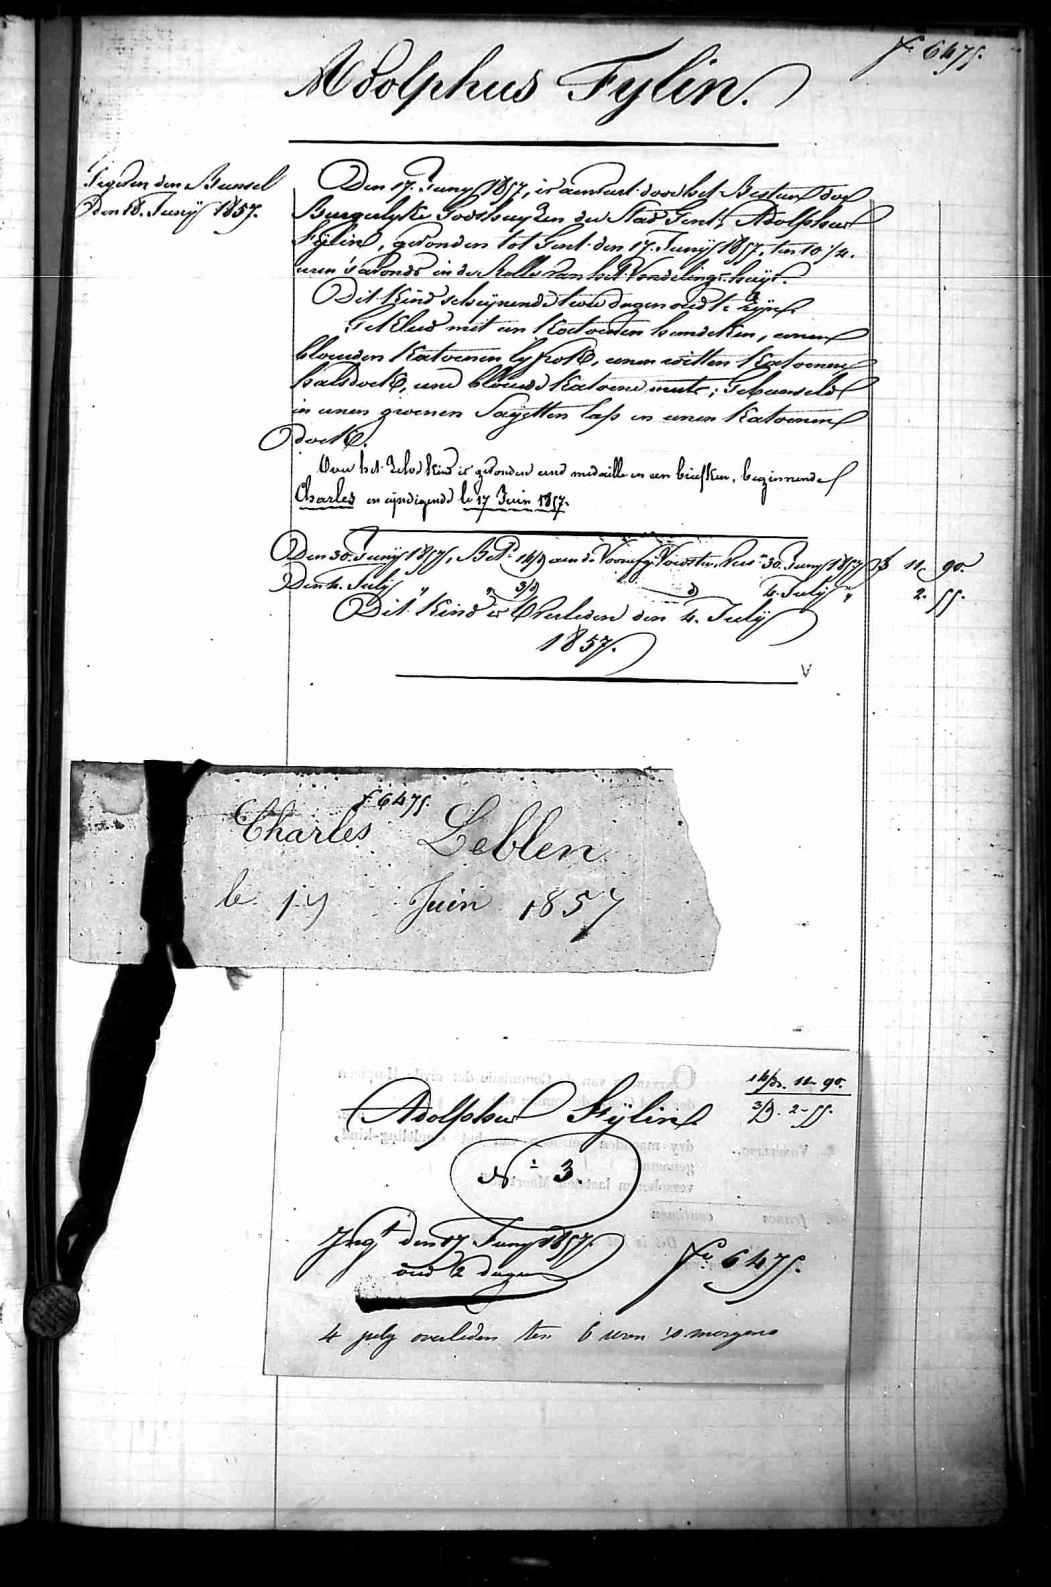 fo 6475.
Adolphus Fylin.
Den 18. Junij 1857.
Den 17. Juny 1857, is aenveird door het Bestuer der
Burgerlyke Godshuyzen der Stad Gent, Adolphus
Fÿlin, gevonden tot Gent den 17. Junij 1857, ten 10 1/4.
uren 's avonds in de Rolle van het Vondelings-huys.
Dit kind scheynende twee dagen oud te zyn.
Gekleed met een katoenen hemdeken, eenen
blauwen katoenen lyfrok, eenen witten katoenen
halsdoek, eene blauwe katoene muts; gebunseld
in eenen groenen Sayetten lap en eenen katoenen
doek.
Van het zelve kind is gevonden eene medaille en een briefken, beginnende
Charles en eyndigende le 17 Juin 1857.
Den 30. Junij 1857, 14/d aen de Voorsten 30. Juny 1857 f 11 90.
Den 4. Julij " " 3/d d 4. July " 2. 55.
Dit Kind is Overleden den 4. Julij
1857.
V
fo 6475.
Charles Leblen
le 17 Juin 1857
14/d. 11 90.
Adolphus Fÿlin 3/d. 2-55.
No 3.
Ingt den 17 Juny 1857.
oud 2 dagen
fo 6475.
4 july overleden ten 6 uren 's morgens